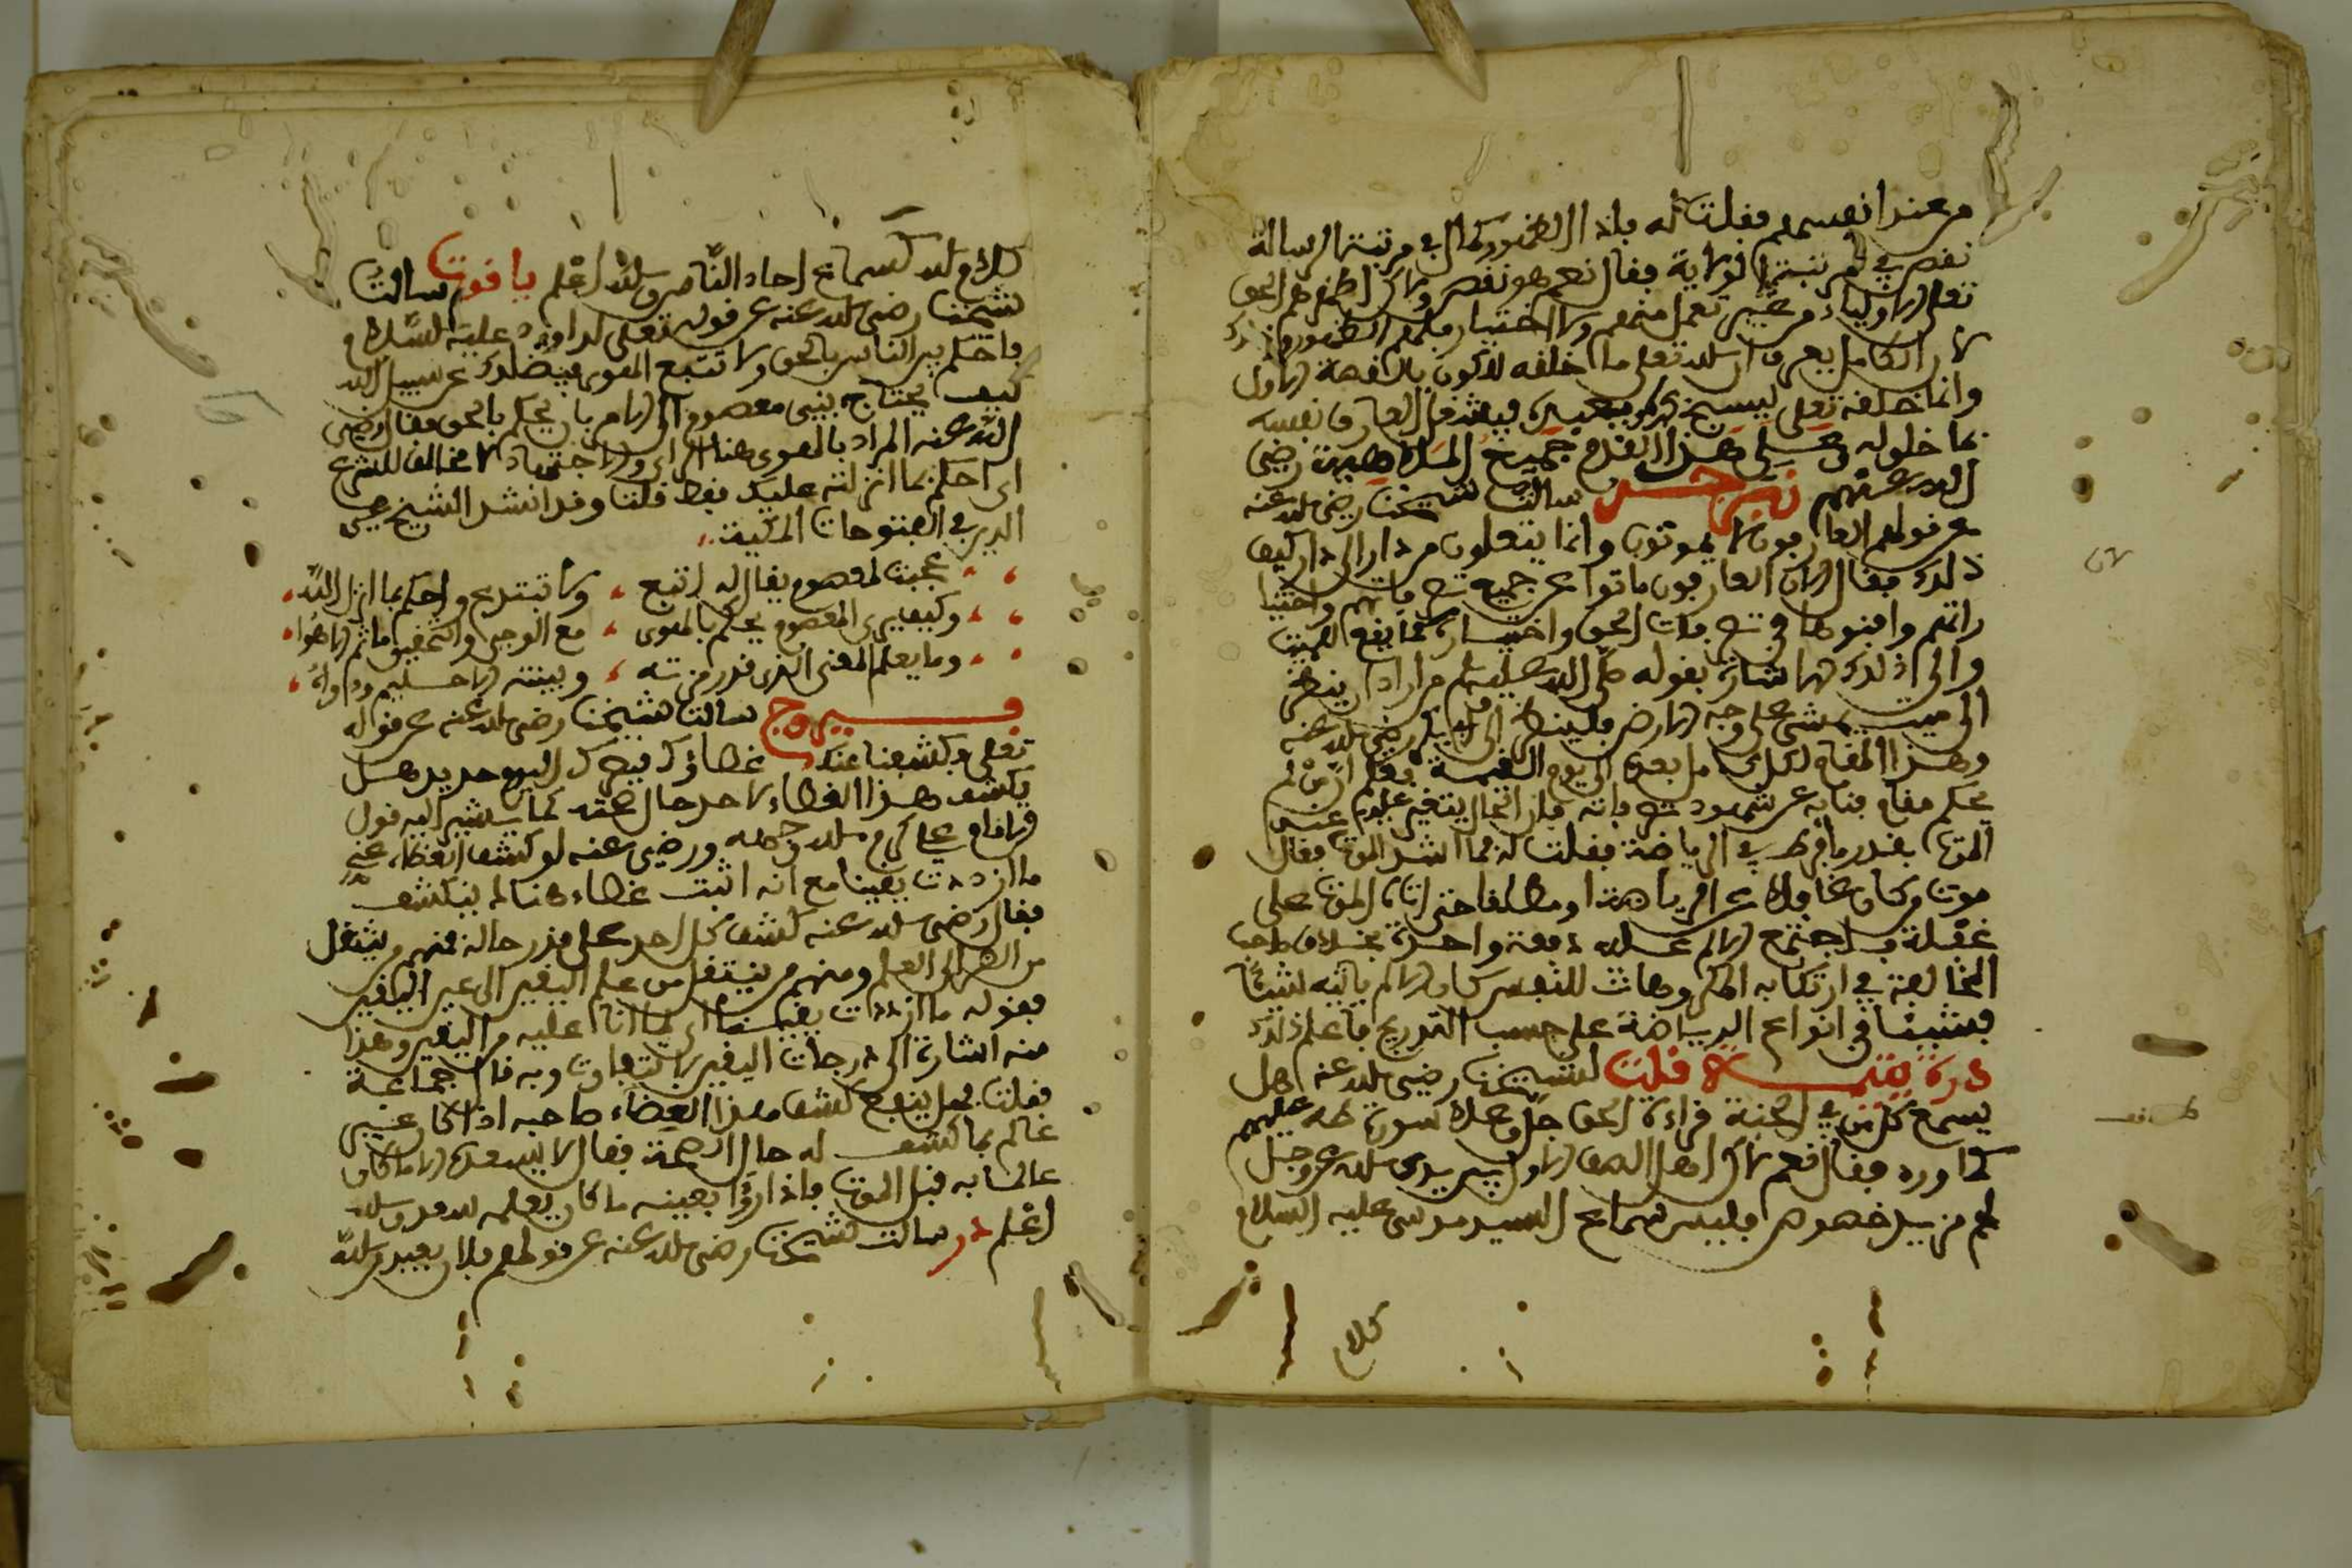 من عند انفسهم فقلت له فاذا الظهور كمال في مرتبة الرسالة
نقص في مرتبة الولاية فقال نعم هو نقص ولاكن اظهرهم الحق
تعلى الاولياء من غير تعمل منهم ولا اختيار فلهم الظهور وذلك
لان الكامل يعرف ان الله تعلى ما خلفه للاكوان بالقصد الاول
وانما خلفه تعلى ليسبح بحمده فيشغل العارف نفسه
بما خلق له وعلى هذا القدم جميع الملامتية رضي
الله عنهم زبرجد سالت شيخنا رضي الله عنه
عن قولهم العارفون لا يموتون وانما ينقلون من دار الى دار كيف
ذلك فقال لان العارفون ماتوا عن جميع تصرفاتهم واختيا
راتهم وافنوها في تصرفات الحق واختياره كما يقع للميت
والى ذلك الاشارة بقوله صلى الله عليه وسلم من اراد ان ينظر
الى ميت يمشي على وجه الارض فلينظر الى ابي بكر رضي الله عنه
وهذا المقام لكل من بعده الى يوم القيمة فعلم ان من لم
يحكم مقام فنايه عن شهود تصرفاته فلازال يتغير عليه
الموت بقدر ما فرط في الرياضة فقلت له فما اشد الموت فقال
موت من كان غافلا عن الرياضة مطلقا حتى اتاه الموت على
غفلة فاجتمع الالم عليه دفعة واحدة بخلاف صاحب
المخالفة في ارتكابه المكروهات للنفس كان الالم ياتيه شيئا
فشيئا في انواع الرياضة على حسب التدريج فاعلم ذلك
درة يتيمة قلت لشيخنا رضي الله عنه هل
يسمع كل من في الجنة قراءة الحق جل وعلا سورة طه عليهم
كما ورد فقال نعم لان اهل الصف الاول بين يدي الله عز وجل
لهم مزيد خصوص فليس سماع السيد موسى عليه السلام
كلام
كلام الله كسماع احاد الناس والله اعلم ياقوت سالت
شيخنا رضي الله عنه عن قوله تعلى لداوود عليه السلام
فاحكم بين الناس بالحق ولا تتبع الهوى فيضلك عن سبيل الله
كيف يحتاج نبي معصوم الى الامر بان يحكم بالحق فقال رضي
الله عنه المراد بالهوى هنا الراي والاجتهاد لا مخالف للشرع
اي احكم بما انزلته عليك فقط قلت وقد انشد الشيخ محيي
الدين في الفتوحات المكية
عجبت لمعصوم يقال له اتبع ، ولا تبتدع واحكم بما انزل الله
وكيف يرى المعصوم يحكم بالهوى ، مع الوحي والتحقيق ما ثم الا هو
وما يعلم المعنى الذي قد رمزته ، وبينته الا حليم واواه
فيروج سالت شيخنا رضي الله عنه عن قوله
تعلى فكشفنا عنك غطاؤك فبصرك اليوم حديد هل
يكشف هذا الغطاء لاحد حال صحته كما يشير اليه قول
الامام علي كرم الله وجهه ورضي عنه لو كشف الغطاء عني
ما ازددت يقينا مع انه اثبت غطاء هنا لم ينكشف
فقال رضي الله عنه كشف كل احد على قدر حاله فمنهم من ينتقل
من الظن الى العلم ومنهم من ينتقل من علم اليقين الى عين اليقين
فقوله ما ازددت يقينا اي لما انا عليه من اليقين وهذا
منه اشارة الى درجات اليقين لا تتفاوت وبه قال جماعة
فقلت هل ينفع كشف هذا الغطاء صاحبه اذا كان غير
عالم بما كشف له حال الصحة فقال لا يسعده الا ما كان
عالما به قبل الموت فاذا راوا بعينه ما كان يعلمه سعد والله
اعلم در سالت شيخنا رضي الله عنه عن قولهم فلان يعبد الله